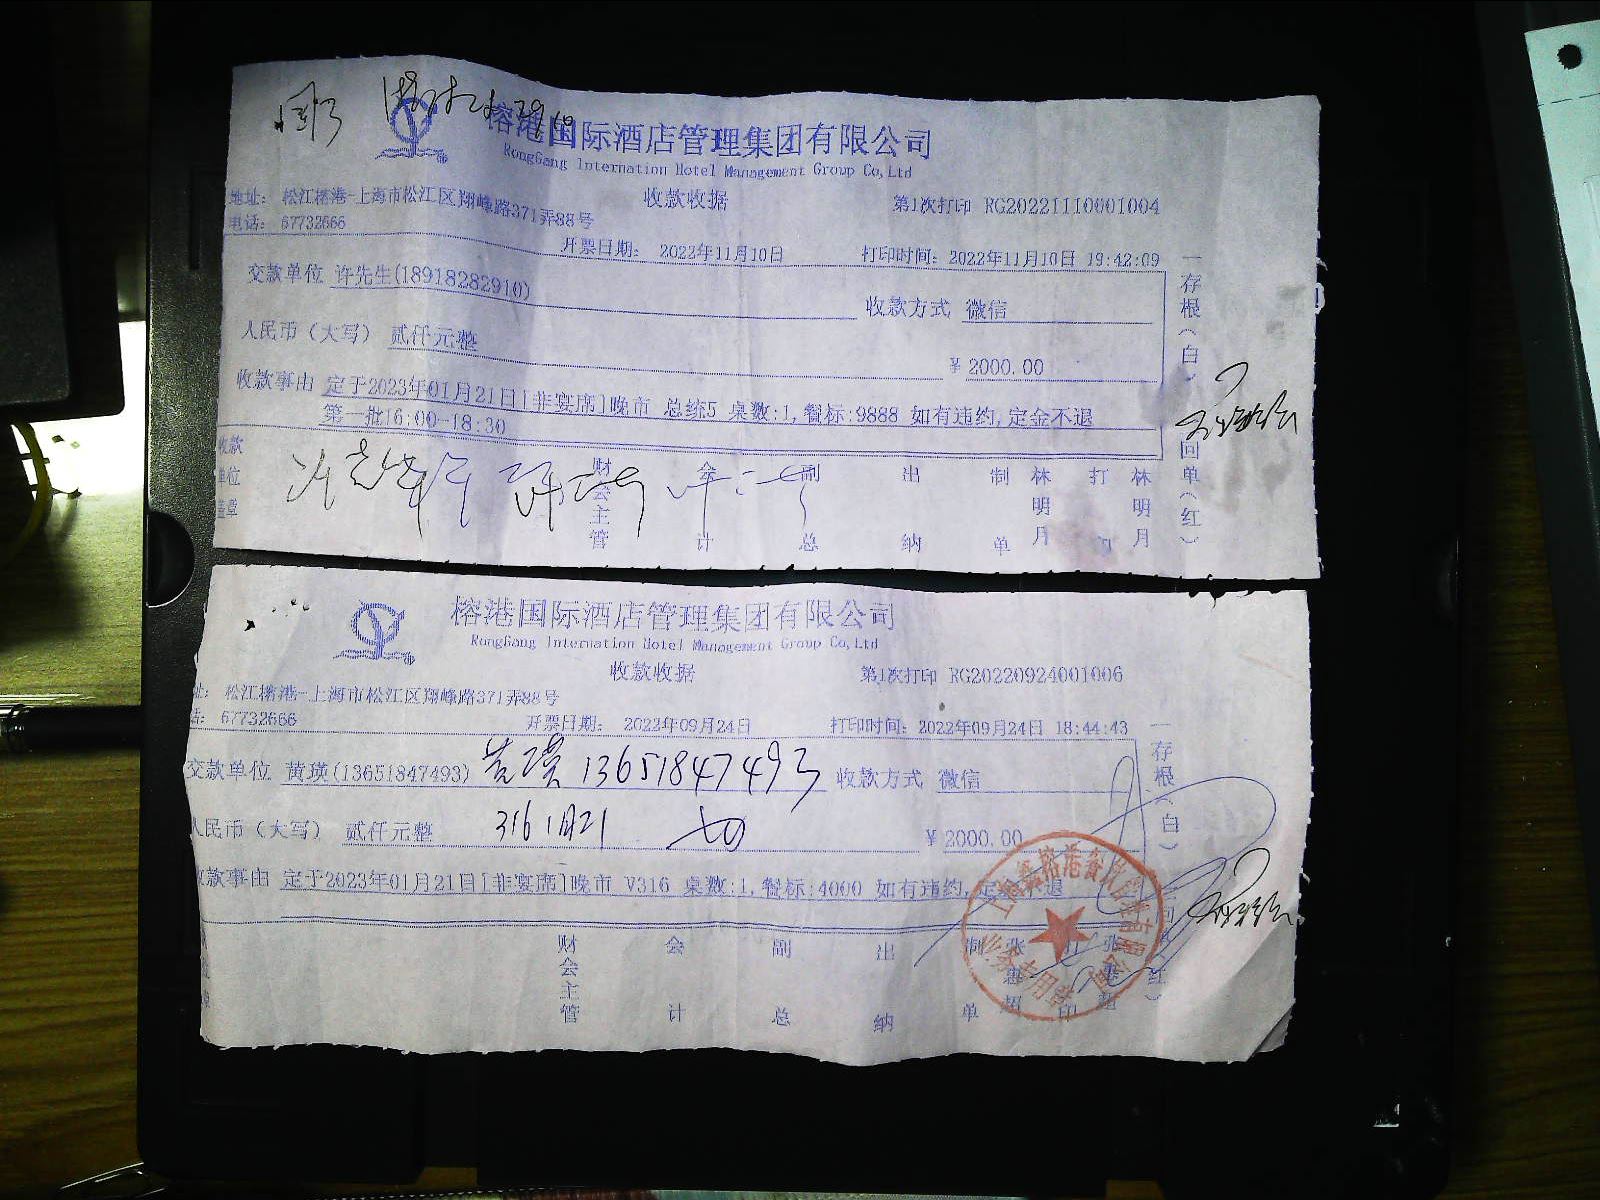 榕港国际酒店管理集团有限公司
RongGang Internation Hotel Management Group Co,Ltd
收款收据
第1次打印 RG20221110001004
地址: 松江榕港-上海市松江区翔峰路371弄88号
电话: 67732666
开票日期: 2022年11月10日 打印时间: 2022年11月10日 19:42:09
交款单位 许先生(18918282910) 收款方式 微信
人民币(大写) 贰仟元整 ¥ 2000.00
收款事由 定于2023年01月21日[非宴席]晚市 总统5 桌数:1,餐标:9888 如有违约,定金不退
第一批16:00-18:30
收款单位盖章 财会主管 会计 副总 出纳 制单 林明月 打印 林明月
一存根(白) 回单(红)
榕港国际酒店管理集团有限公司
RongGang Internation Hotel Management Group Co,Ltd
收款收据
第1次打印 RG20220924001006
址: 松江榕港-上海市松江区翔峰路371弄88号
话: 67732666
开票日期: 2022年09月24日 打印时间: 2022年09月24日 18:44:43
交款单位 黄瑛(13651847493) 黄瑛 13651847493 收款方式 微信
人民币(大写) 贰仟元整 316 1月21 ¥ 2000.00
收款事由 定于2023年01月21日[非宴席]晚市 V316 桌数:1,餐标:4000 如有违约,定 退
财会主管 会计 副总 出纳 制单 打印
一存根(白) 回 红)
专用章